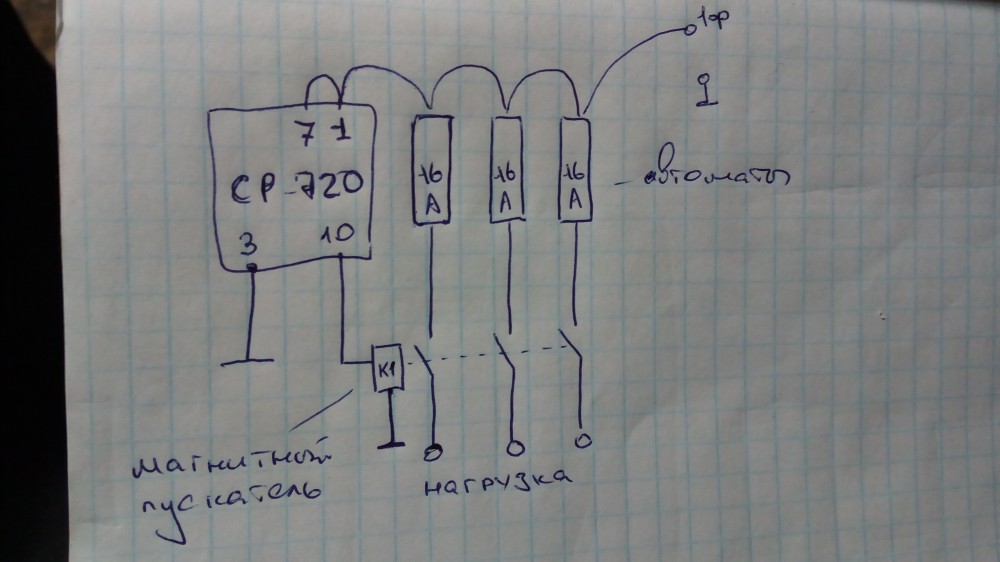 1ф
1
7 1
CP-720
3 10
16
A
16
A
16
A
автоматы
K1
магнитный
пускатель
нагрузка